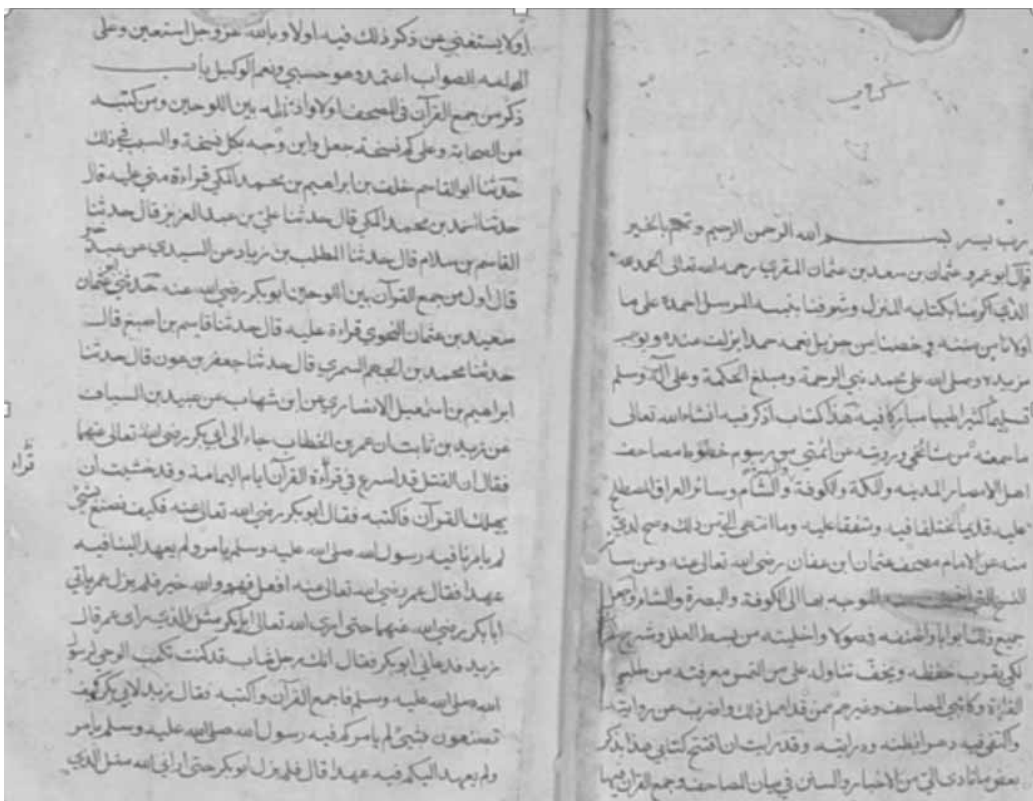 رب يسر بسم الله الرحمن الرحيم وتمم بالخير
قال ابو عمرو عثمان بن سعد بن عثمان المقري رحمه الله تعالى الحمد لله
الذي اكرمنا بكتابه المنزل وشرفنا بنبيه المرسل احمده على ما
اولانا من مننه وخصنا من جزيل نعمه حمدا يزلف عنده ويوجب
مزيده وصلى الله على محمد نبي الرحمة ومبلغ الحكمة وعلى آله وسلم
تسليما كثيرا طيبا مباركا فيه هذا كتاب اذكر فيه انشاء الله تعالى
ما سمعته من مشائخي ورويته عن ائمتي من رسوم خطوط مصاحف
اهل الامصار المدينه والمكة والكوفة والشام وسائر العراق المصطلح
عليه قديما مختلفا فيه ومتفقا عليه وما انتهى الي من ذلك وصح لدي
منه عن الامام مصحف عثمان ابن عفان رضي الله تعالى عنه وعن سائر
النسخ التي الموجه بها الى الكوفة والبصرة والشام واجعل
جميع ذلك ابوابا واصنفه فصولا واخليته من بسط العلل وشرح
لكي يقرب حفظه ويخف تناوله على من التمس معرفته من طلبي
القراءة وكاتبي المصاحف وغيرهم ممن قد اهمل ذلك واضرب عن روايته
واكتفى فيه دهرا بظنه ودرايته وقد رايت ان افتتح كتابي هذا بذكر
بعض ما تادى الي من الاخبار والسنن في بيان المصاحف وجمع القران فيها
اولا يستغني من ذكر ذلك فيه اولا وبالله عز وجل استعين وعلى
الهامه للصواب اعتمد وهو حسبي ونعم الوكيل باب
ذكر من جمع القرآن في المصحف اولا واد بين اللوحين ومن كتبه
من الصحابة وعلى كم نسخة جعل واين وجه بكل نسخة والسبب في ذلك
حدثنا ابو القاسم خلف بن ابراهيم بن محمد المكي قراءة مني عليه قال
حدثنا احمد بن محمد المكي قال حدثنا علي بن عبد العزيز قال حدثنا
القاسم بن سلام قال حدثنا المطلب بن زياد عن السدي عن عبد خير
قال اول من جمع القرآن بين اللوحين ابو بكر رضي الله عنه حدثني عثمان
سعيد بن عثمان النحوي قراءة عليه قال حدثنا قاسم بن اصبغ قال
حدثنا محمد بن الجهم السمري قال حدثنا جعفر بن عون قال حدثنا
ابراهيم بن اسمعيل الانصاري عن ابن شهاب عن عبيد بن السباق
عن زيد بن ثابت ان عمر بن الخطاب جاء الى ابي بكر رضي الله تعالى عنهما
فقال ان القتل قد اسرع في قراءة القرآن ايام اليمامة وقد خشيت ان
يهلك القرآن فاكتبه فقال ابو بكر رضي الله تعالى عنه فكيف نصنع بشئ
لم يامرنا فيه رسول الله صلى الله عليه وسلم بامر ولم يعهد الينا فيه
عهدا فقال عمر رضي الله تعالى عنه افعل فهو والله خير فلم يزل عمر ياتي
ابا بكر رضي الله عنهما حتى ارى الله تعالى ابا بكر مثل الذي راى عمر قال
زيد فدعاني ابو بكر فقال انك رجل شاب قد كنت تكتب الوحي لرسول
الله صلى الله عليه وسلم فاجمع القرآن واكتبه فقال زيد لابي بكر كيف
تصنعون بشئ لم يامركم فيه رسول الله صلى الله عليه وسلم بامر
ولم يعهد اليكم فيه عهدا قال فلم يزل ابو بكر حتى اراني الله مثل الذي